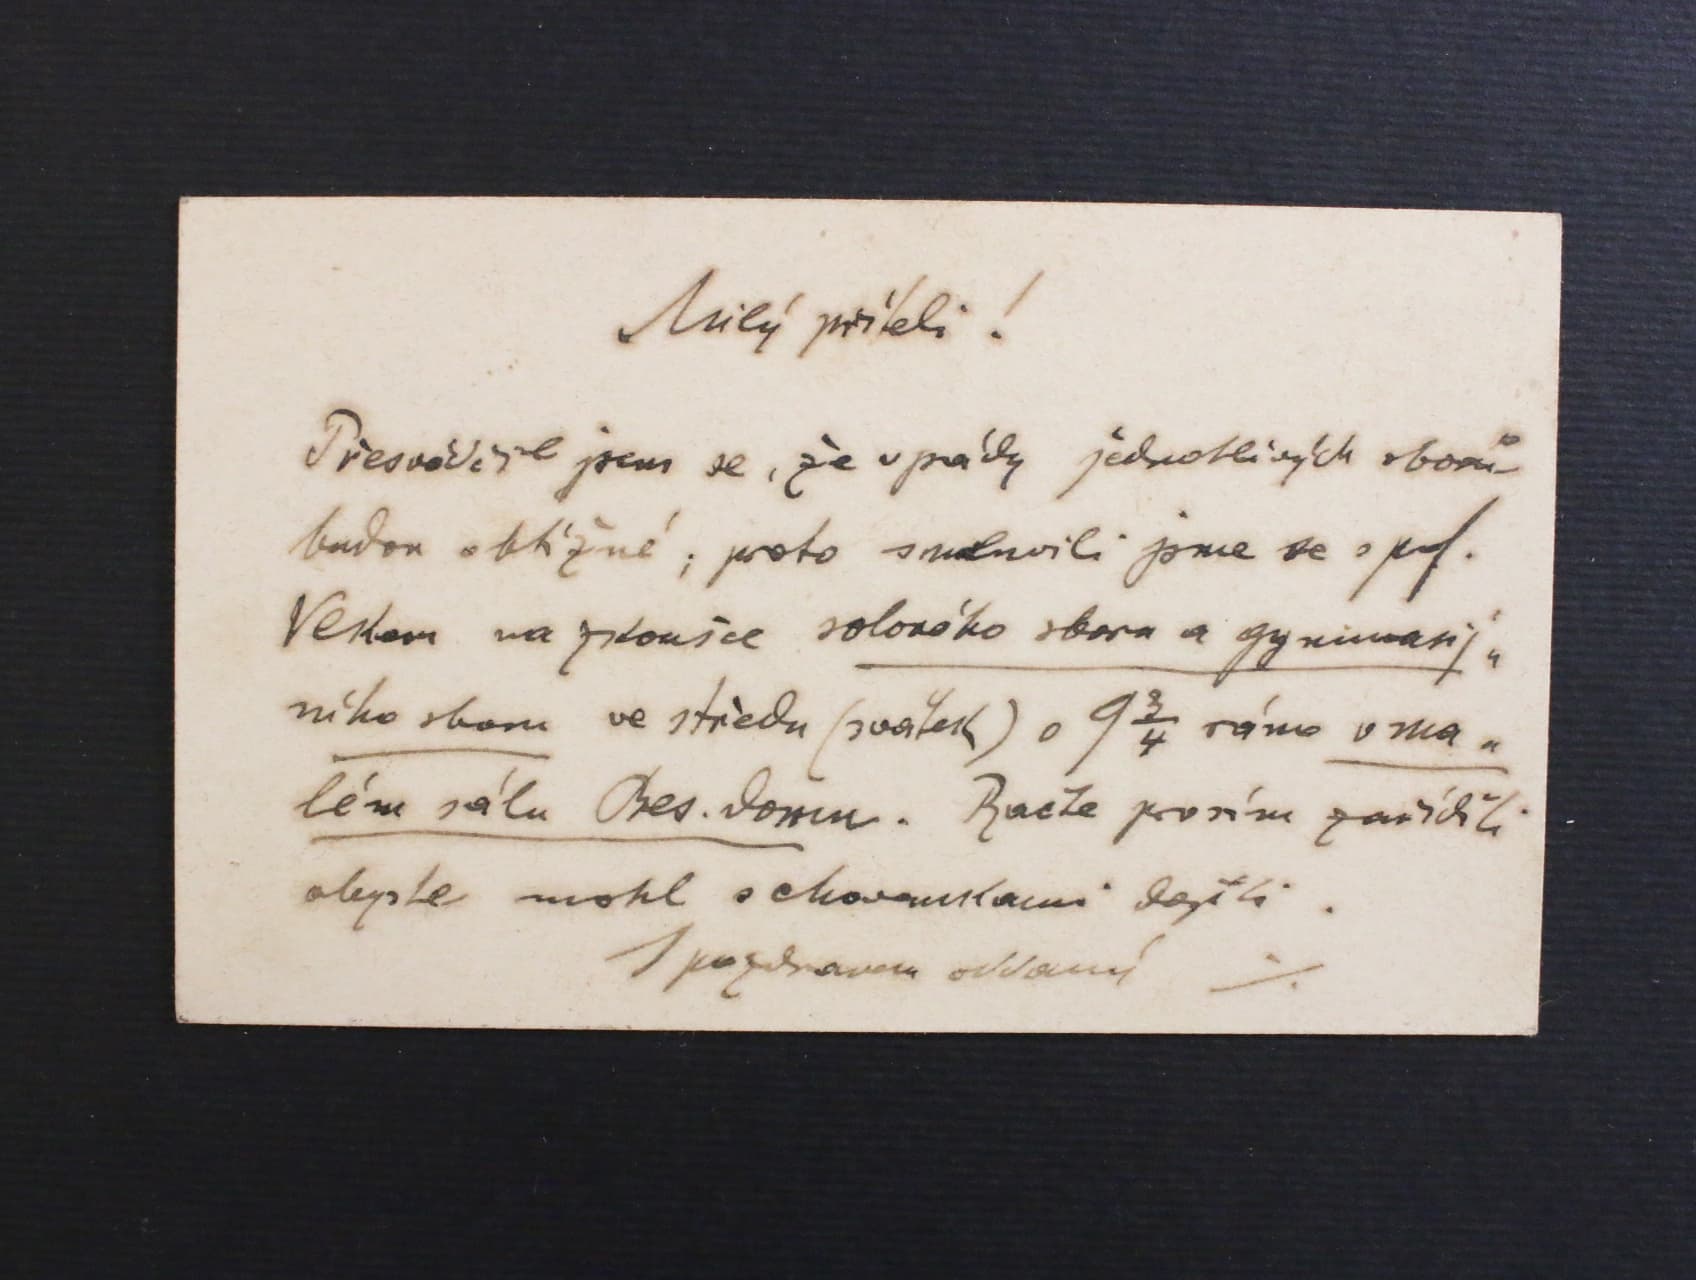 Milý příteli!
Přesvědčil jsem se, že vpády jednotlivých sborů
budou obtížné; proto smluvili jsme se s prof.
Veskem na zkoušce solového sboru a gymnasij„
ního sboru ve středu (svátek) o 9 3/4 ráno v ma„
lém sálu Bes. domu. Račte prosím zaříditi
abyste mohl s chovankami dojíti.
S pozdravem oddaný